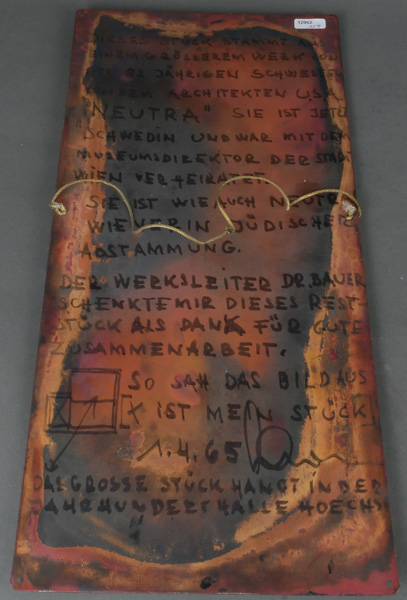 12952
DIESES STÜCK STAMMT AUS
EINEM GRÖSSEREM WERK VON
DER 82 JÄHRIGEN SCHWESTER
VON DEM ARCHITEKTEN U.S.A.
"NEUTRA" SIE IST JETZT
SCHWEDIN UND WAR MIT DEM
MUSEUMSDIREKTOR DER STADT
WIEN VERHEIRATET.
SIE IST WIE AUCH NEUTRA
WIENERIN JÜDISCHER
ABSTAMMUNG.
DER WERKSLEITER DR. BAUER
SCHENKTE MIR DIESES REST-
STÜCK ALS DANK FÜR GUTE
ZUSAMMENARBEIT.
SO SAH DAS BILD AUS
[X IST MEIN STÜCK]
1.4.65
DAS GROSSE STÜCK HÄNGT IN DER
JAHRHUNDERTHALLE HOECHST